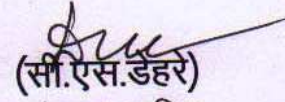 (सी.एस.डेहरे)